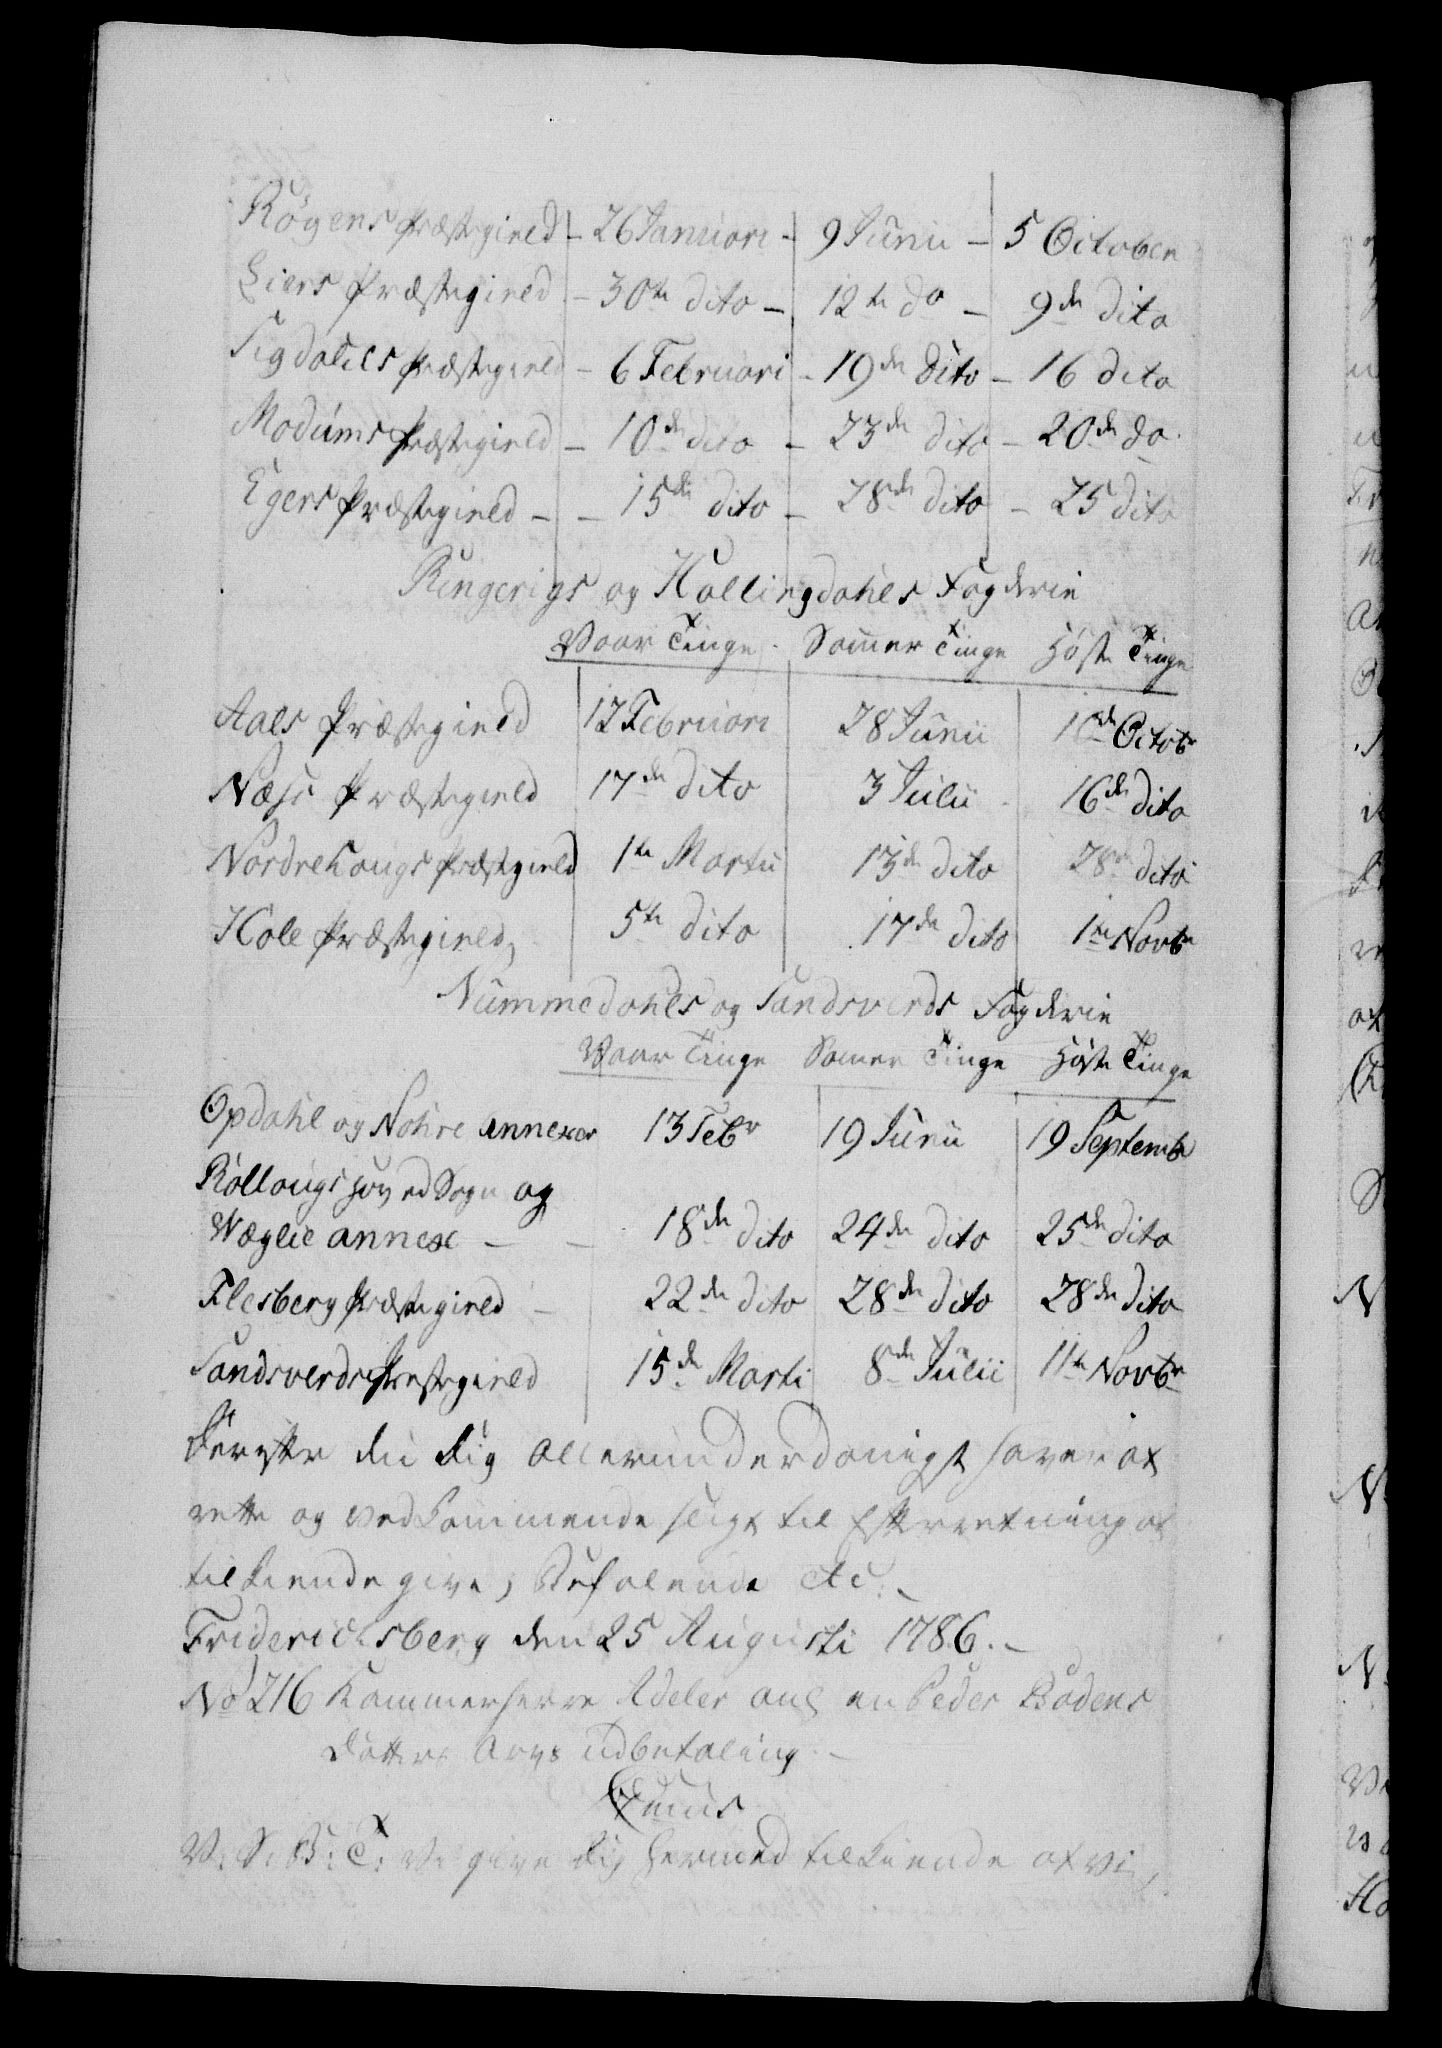 Røgens Præstegield – 26 Januari – 9 Junii – 5 October
Liers Præstegield – 30te dito – 12te do – 9de dito
Sigdahls Præstegield – 6 Februari – 19de dito – 16 dito
Modums Præstegield – 10de dito – 23de dito – 20de do
Egers Præstegield – – 15de dito – 28de dito – 25 dito
Ringerigs og Hallingdahls Fogderie
Vaar Tinge Somer Tinge Høste Tinge
Aals Præstegield 12 Februari 28 Junii Octobr
Næss Præstegield 17de dito 3 Julii 16de dito
Nordrehougs Præstegield 1te Martii 13de dito 28de dito
Hole Præstegield, 5te dito 17de dito 1te Novbr
Nummedahls og Sandsverds Fogderie
Vaar Tinge Somer Tinge Høste Tinge
Opdahl og Nohre annexer 13 Febr 19 Junii 19 Septembr
Rollougs Hoved Sogn og
Væglie annex – – 18de dito 24de dito 25de dito
Flesberg Præstegield – 22de dito 28de dito 28de dito
Sandsverds Præstegield 15de Marti 8de Julii 11te Novbr
Derefter du dig allerunderdanigst haver at
rette og vedkommende sligt til Efterretning at
tilkiende give, Befalende etc.
Fridericksberg den 25 Augusti 1786. –
No 216 Kammerherre Adeler ang en Peder Bodens
Datters Arvs udbetaling. –
V: S: B: T: Vi give dig hermed tilkiende at vi,